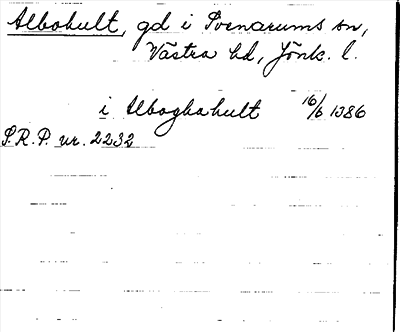 Albohult, gd i Svenarums sn,
Västra hd, Jönk. l.
i Alboghahult 16/6 1386
S.R.P. nr. 2232